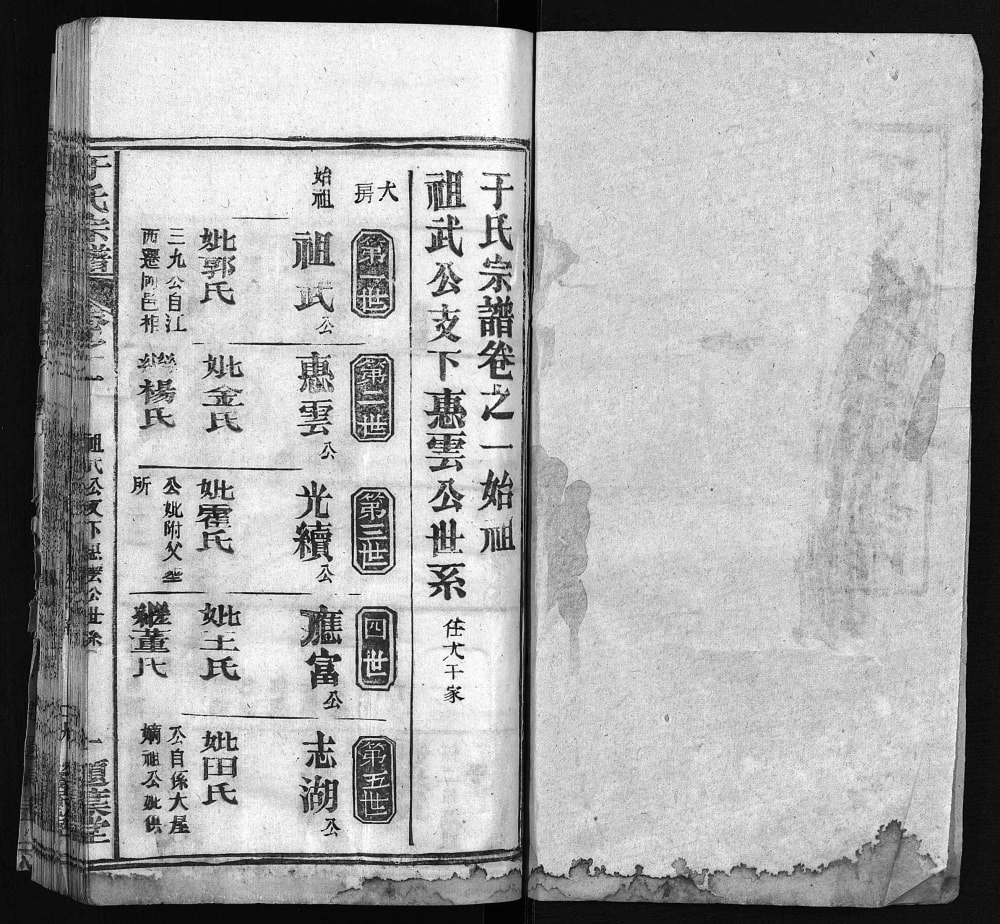 于氏宗譜卷之一始祖
祖武公支下惠雲公世系 住大于家
大房
第一世
第二世
第三世
四世
第五世
始祖
祖武公
妣郭氏
三九公自江
西遷岡邑相
惠雲公
妣金氏
繼楊氏
光續公
妣霍氏
公妣附父塋
所
應富公
妣王氏
繼董氏
志湖公
妣田氏
公自係大屋
嫡祖公妣供
于氏宗譜
卷之一
祖武公支下惠雲公世系
一